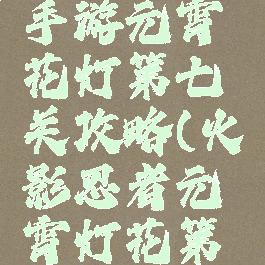 手游元宵
花灯第七
关攻略(火
影忍者元
宵灯花第